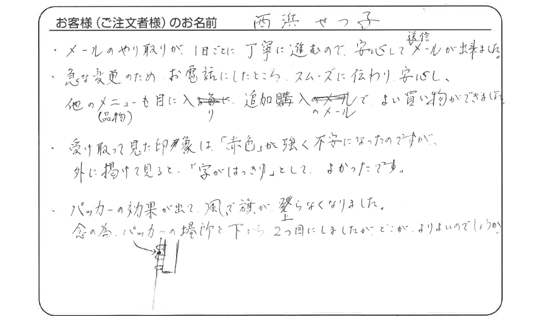 お客様（ご注文者様）のお名前 西浜 せつ子
・メールのやり取りが、1日ごとに丁寧に進むので、安心して送信メールが出来ました。
・急な変更のため、お電話にしたところ、スムーズに伝わり、安心し、
他のメニュー(品物)も目に入り、追加購入のメールで、よい買い物ができました
・受け取って見た印象は、「赤色」が強く不安になったのですが、
外に掲げて見ると、「字がはっきり」として、よかったです。
・パッカーの効果が出て、風で旗が上らなくなりました。
念の為、パッカーの場所を下から2つ目にしましたが、どこが、よりよいのでしょうか